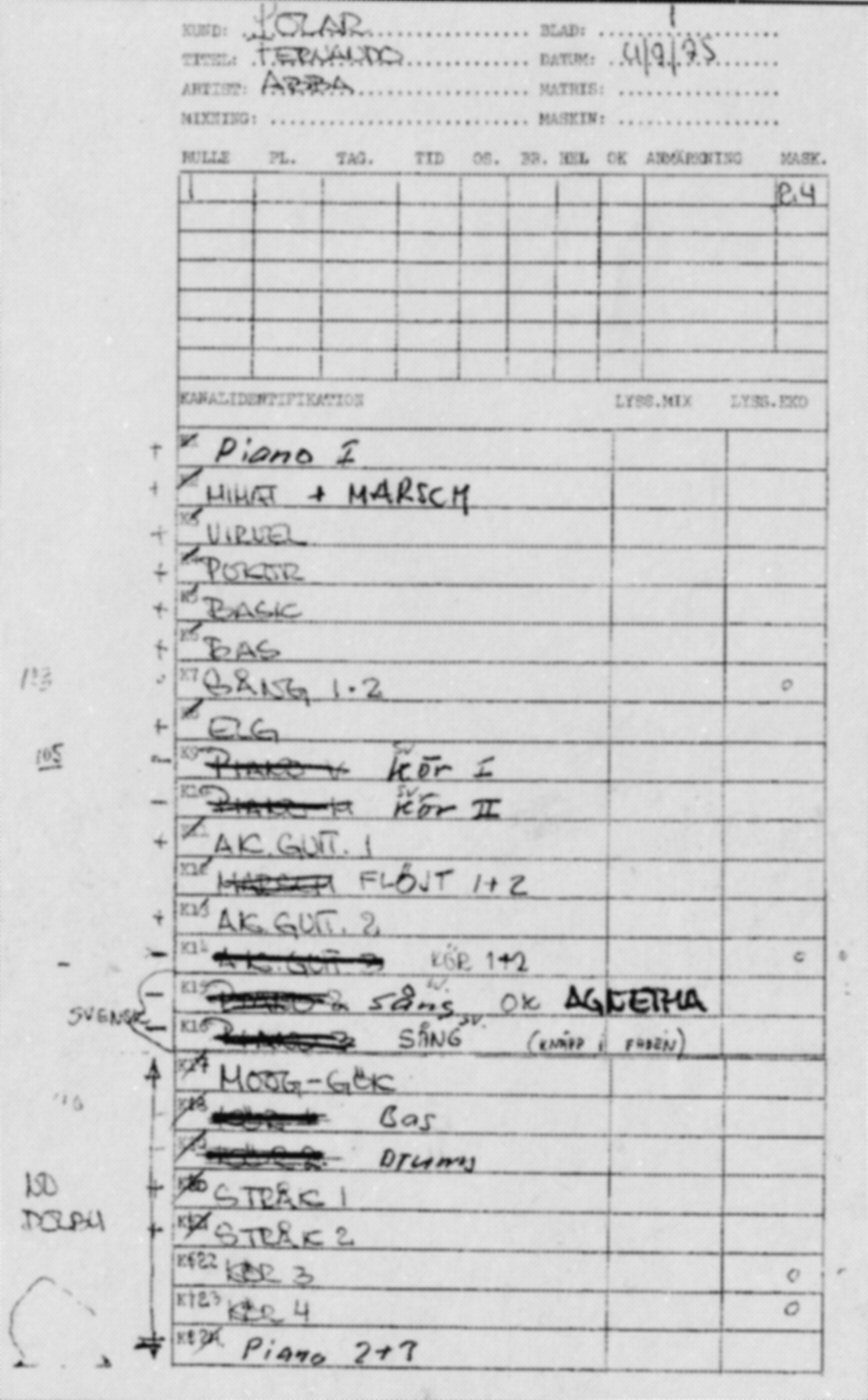 KUND: POLAR BLAD: 1
TITEL: FERNANDO DATUM: 4/9/75
ARTIST: ABBA MATRIS:
MIXNING: MASKIN:
RULLE PL. TAG. TID OS. BR. HEL OK ANMÄRKNING MASK.
1 24
KANALIDENTIFIKATION LYSS.MIX LYSS.EKO
+ Piano I
+ HIHAT + MARSCH
+ K3 VIRVEL
+ K4 PUKOR
+ K5 BASK
+ K6 BAS
K7 SÅNG 1+2 o
+ K8 ELG
105 - K9 PIANO sv Kör I
- K10 PIANO sv. Kör II
+ AK. GUIT. 1
K12 MARSCH FLÖJT 1+2
+ K13 AK. GUIT. 2
- K14 AK. GUIT 3 KÖR 1+2 o
- K15 sång sv. OK AGNETHA
SVENSK - K16 SÅNG sv. (KNÄPP I FADEN)
K17 MOOG-GÖK
K18 KÖR 1 Bas
KÖR 2 Drums
NO + STRÅK 1
DOLBY + STRÅK 2
K22 KÖR 3 o
K23 KÖR 4 o
K24 Piano 2+3